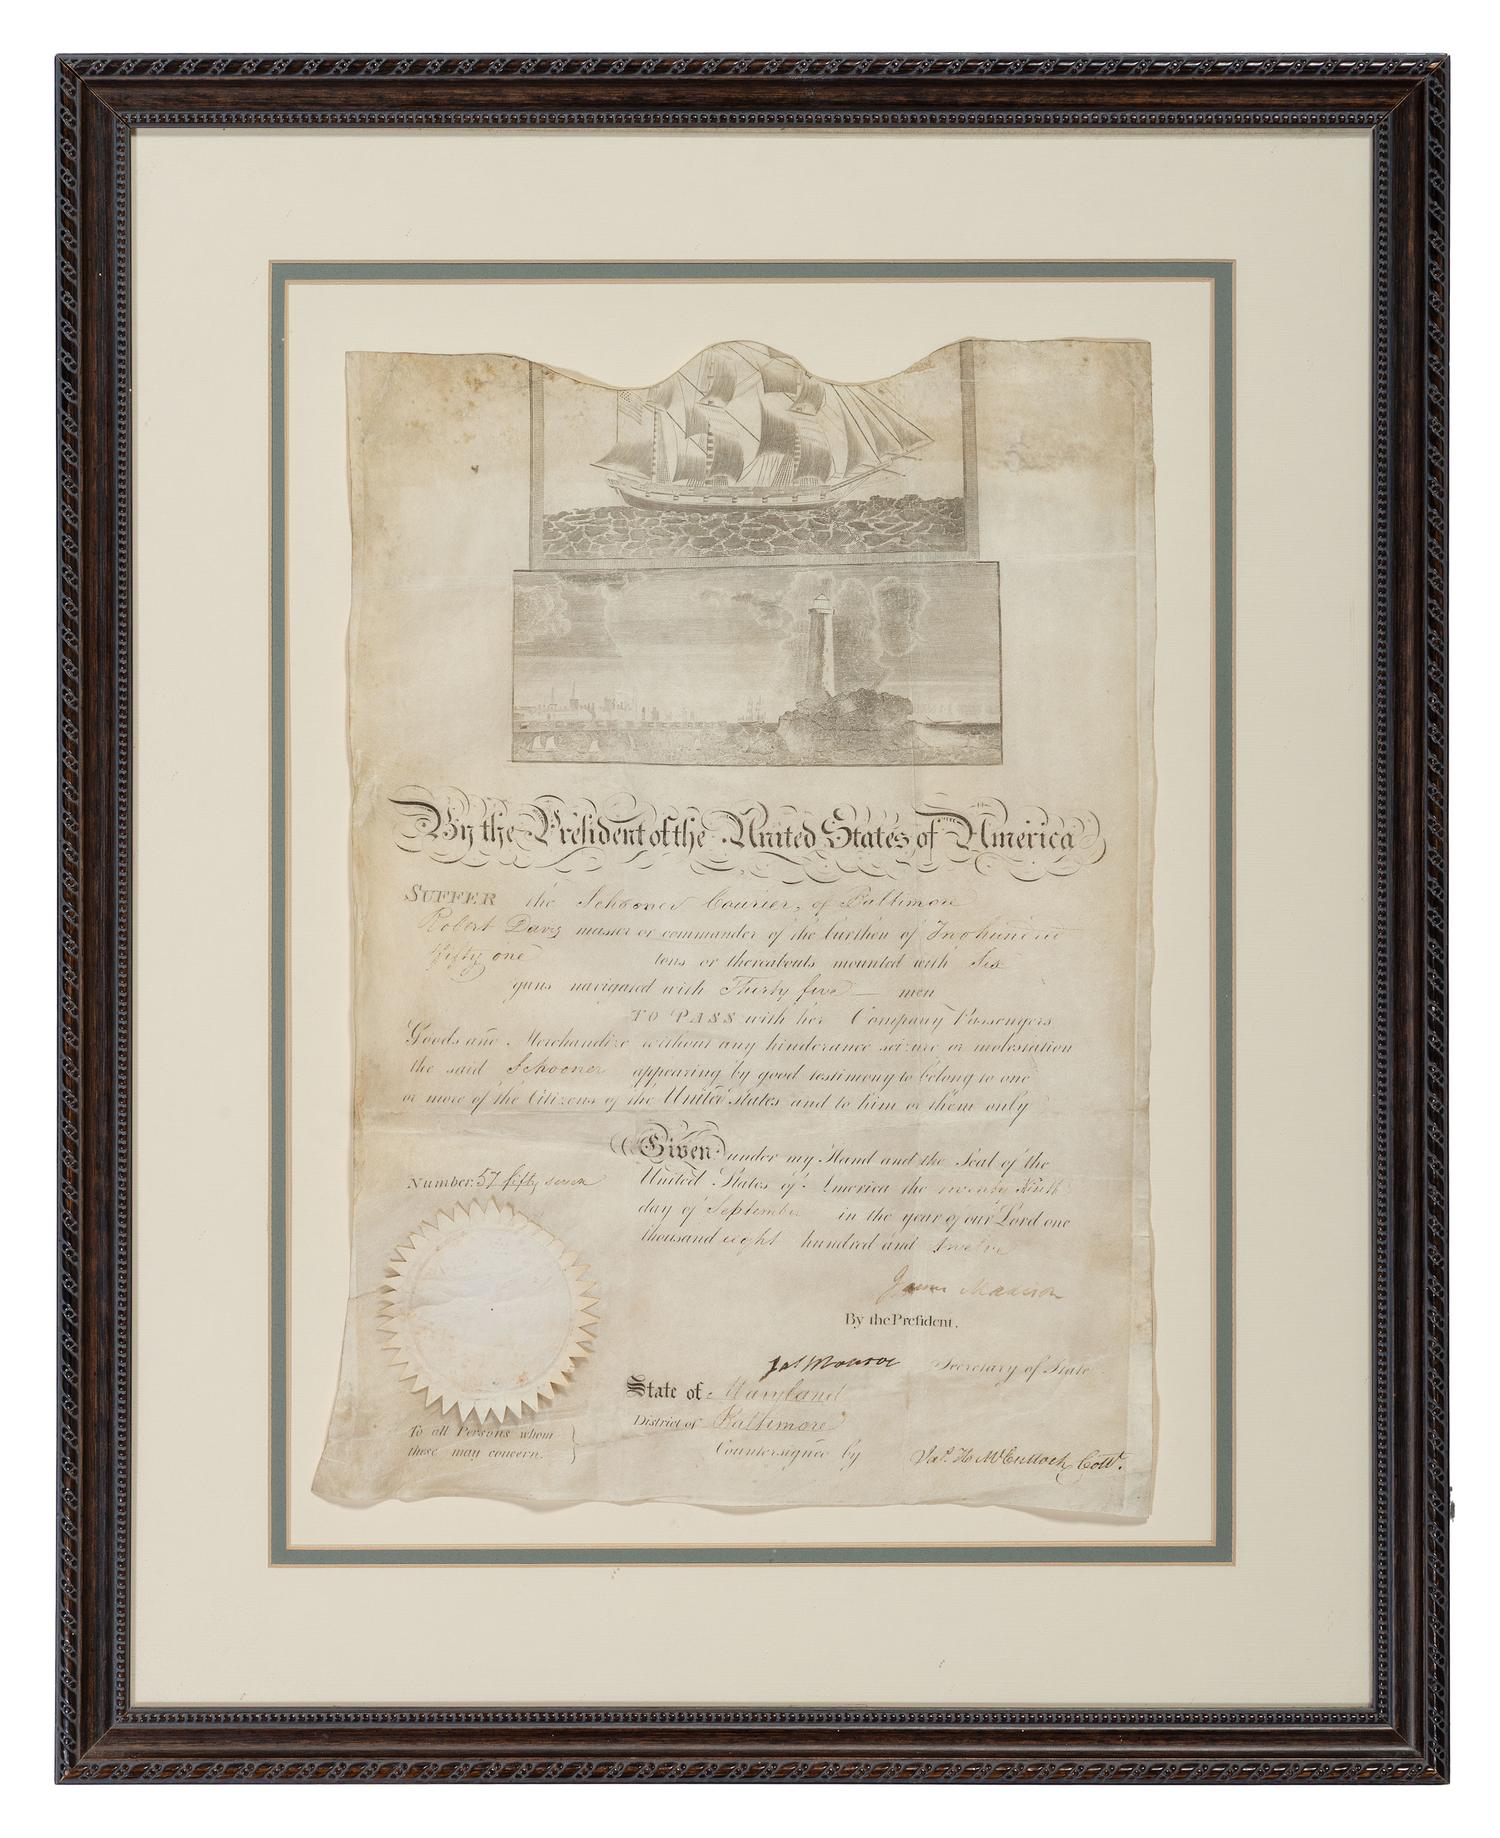 By the President of the United States of America
SUFFER the Schooner Courier, of Baltimore
Robert Davis master or commander of the burthen of Two hundred
fifty one tons or thereabouts mounted with Six
guns navigated with Thirty five men
TO PASS with her Company Passengers
Goods and Merchandize without any hinderance seizure or molestation
the said Schooner appearing by good testimony to belong to one
or more of the Citizens of the United States and to him or them only
Given under my Hand and the Seal of the
United States of America the twenty Ninth
day of September in the year of our Lord one
thousand eight hundred and twelve
Number 57 fifty seven
James Madison
By the Preſident.
Jas Monroe Secretary of State
State of Maryland
District of Baltimore
Countersigned by Jas. H McCulloch, Collr.
To all Persons whom
these may concern.